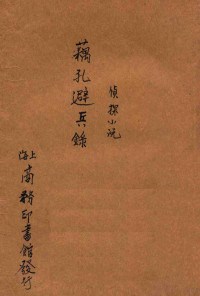 偵探小說
藕孔避兵錄
上海
商務印書館發行